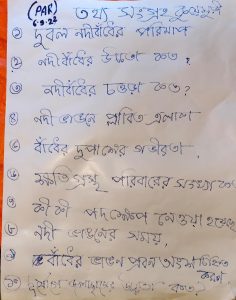 (PAR) তথ্য সংগ্রহ
6-9-23
① দুর্বল নদীবাঁধের পরিমাপ
২ নদীবাঁধের উচ্চতা কত?
৩ নদীবাঁধের চওড়া কত?
৪ নদী ভাঙনে প্লাবিত এলাকা
৫ বাঁধের দুপাশের গভীরতা,
৬ ক্ষতিগ্রস্থ পরিবারের সংখ্যা কত
৭ কী কী পদক্ষেপ নেওয়া হয়েছে
৮ নদী ভাঙনের সময়,
৯ বাঁধের ভাঙন প্রবল অংশ চিহ্নিত করণ
১০